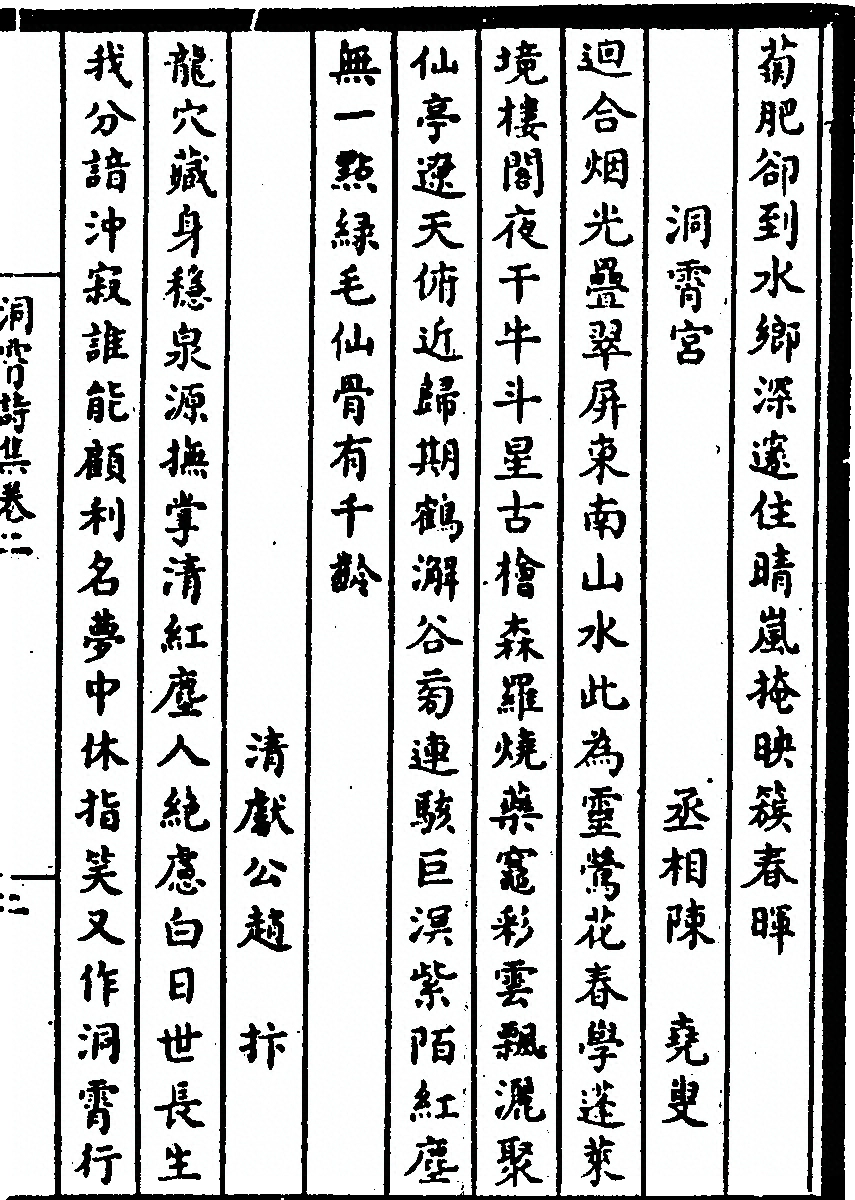 蔔肥卻到水鄉深邃住晴嵐掩映簇春暉
洞霄宮　丞相陳　堯叟
迴合烟光疊翠屏東南山水此為靈鶯花春學蓬萊
境樓閣夜干牛斗星古檜森羅燒藥竈彩雲飄灑聚
仙亭遼天俯近歸期鶴澥谷蔔連駭巨溟紫陌紅塵
無一點綠毛仙骨有千齡
清獻公趙　抃
龍穴藏身穩泉源撫掌清紅塵人絶慮白日世長生
我分諳沖寂誰能顧利名夢中休指笑又作洞霄行
洞霄詩集卷二
二